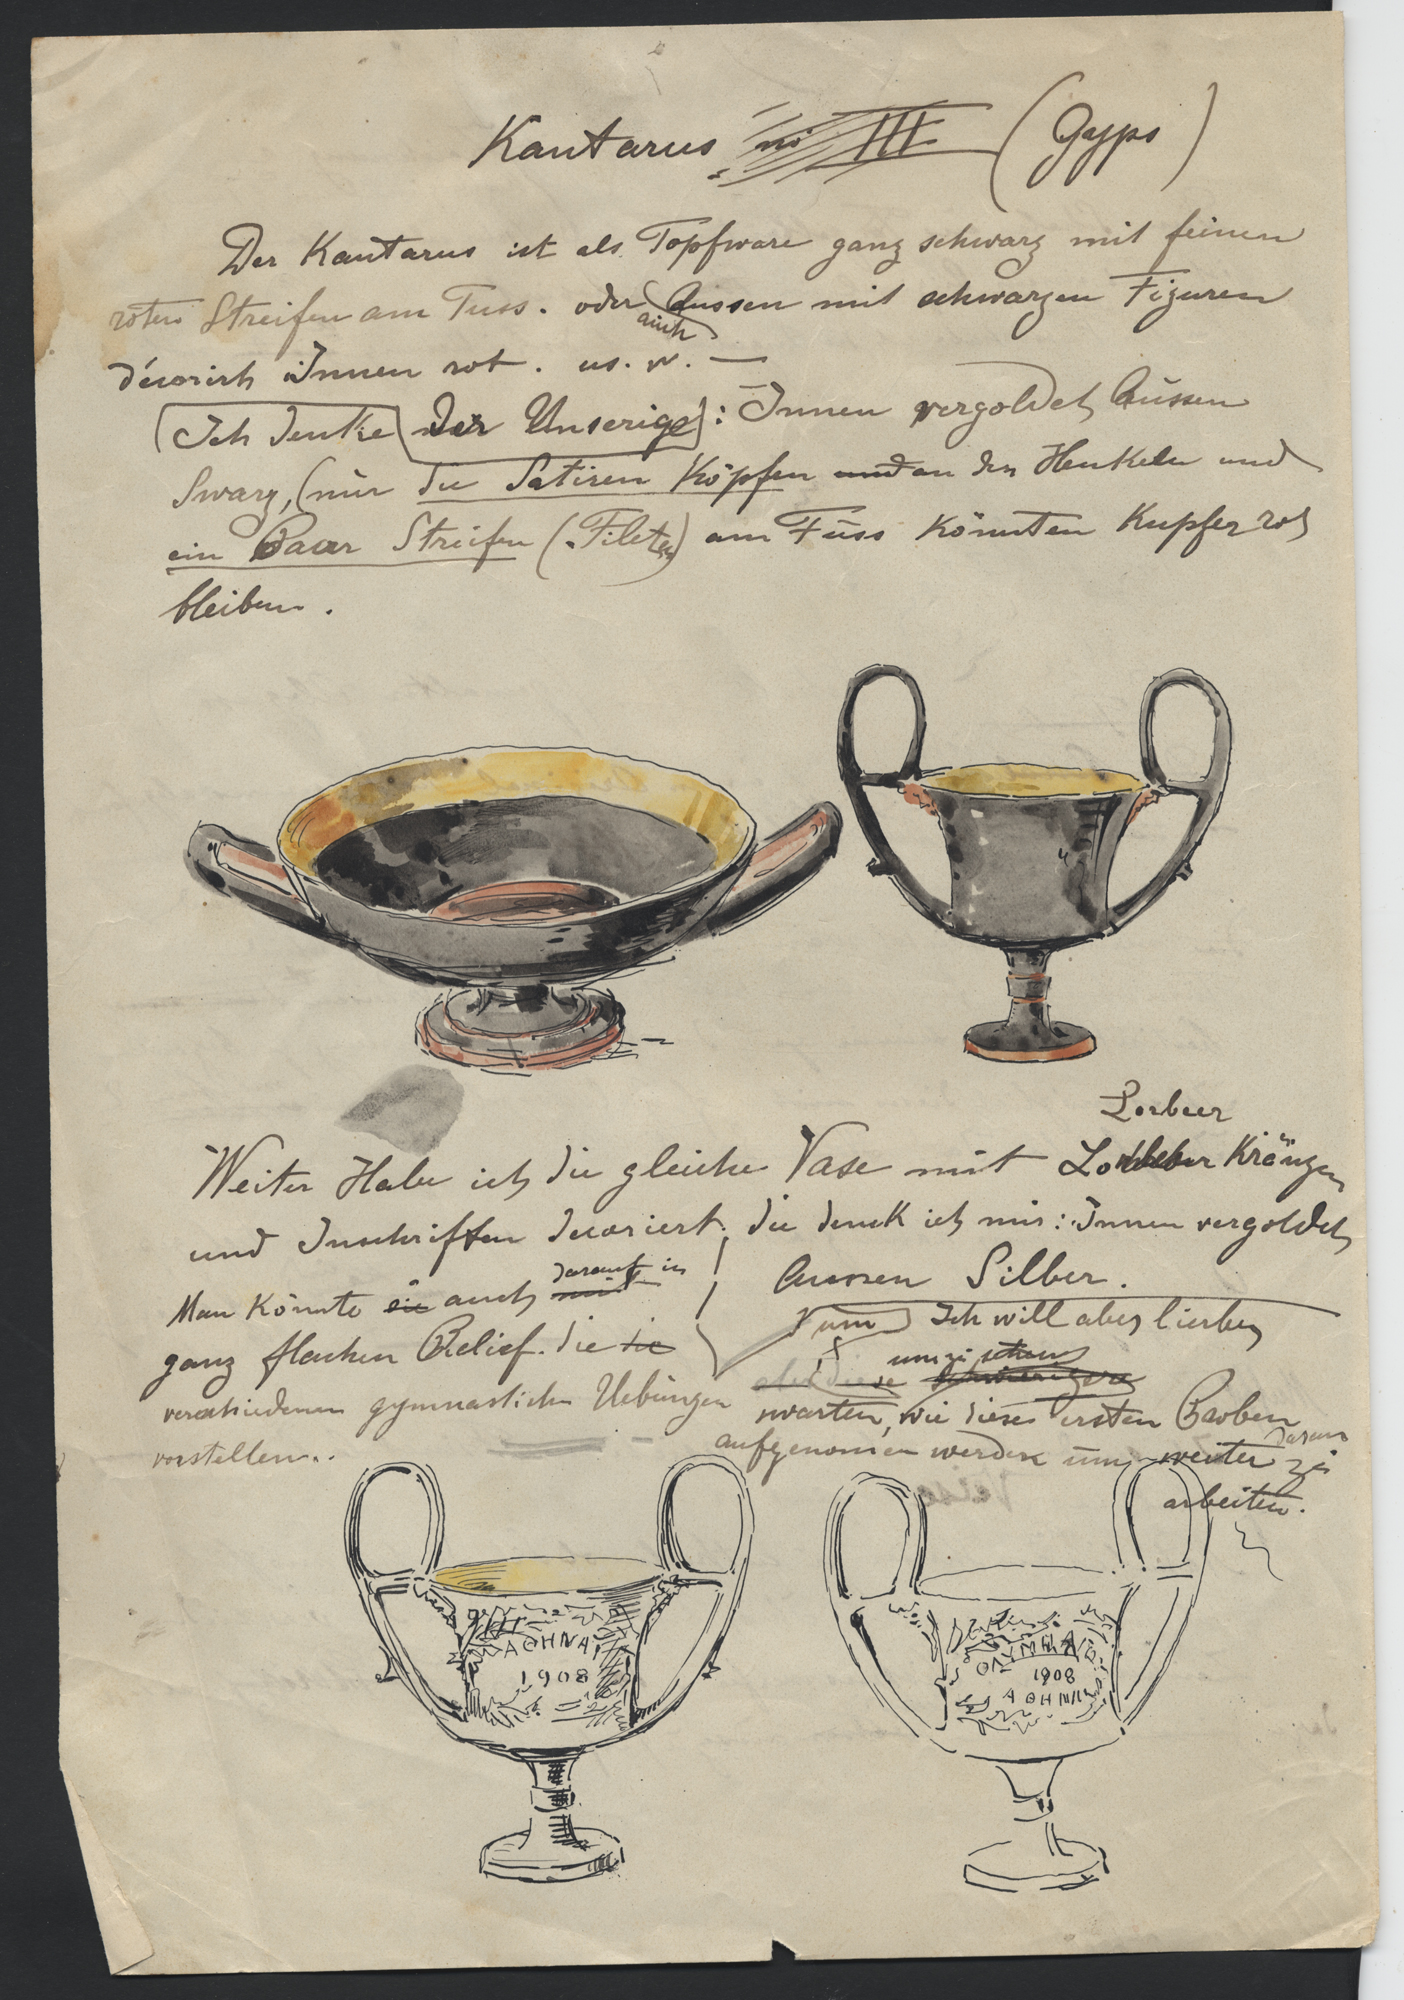 Kantarus no III (Gyps)
Der Kantarus ist als Topfware ganz schwarz mit feinen
roten Streifen am Fuss. oder Aussen mit schwarzen Figuren
auch
décorirt Innen rot. us. w. —
(Ich denke) der Unserige): Innen vergoldet Aüssen
Swarz, (nür die Satiren Köpfen und an den Henkeln und
ein Paar Streifen (Fileten) am Füss könnten Kupfer rot
bleiben.
Lorbeer
Weiter Habe ich die gleiche Vase mit Kränzen
und Inschriften decoriert, die denck ich mir: Innen vergoldet
Aussen Silber.
Man könnte sie auch mit darauf in
ganz flachen Relief. die die
verschiedenen gymnastischen Uebüngen
vorstellen..
um Ich will aber lieber
diese
warten, wie diese ersten Proben
aufgenomen werden üm weiter daran zü
arbeiten.
ΑΘΗΝΑΙ
1908
ΟΛΥΜΠΙΑ
1908
ΑΘΗΝΑΙ